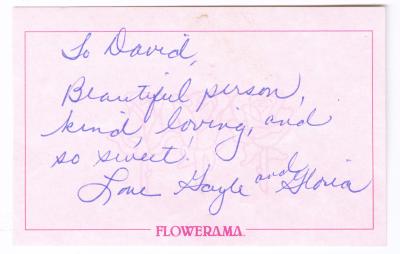 To David,
Beautiful person,
kind, loving, and
so sweet!
Love Gayle and Gloria
FLOWERAMA